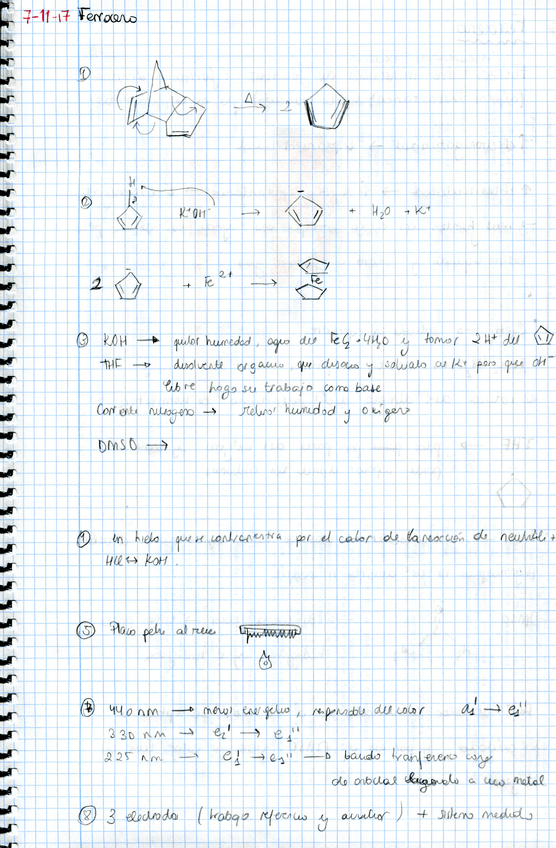 7-11-17 Ferroceno
①
Δ
2
②
H
K⁺OH⁻ → + H₂O + K⁺
2 + Fe²⁺ → Fe
③ KOH → quitar humedad, agua del FeCl₂·4H₂O y tomar 2H⁺ del
THF → disolvente organico, que disuelve y solvata al K⁺ para que OH⁻
libre haga su trabajo como base
Corriente nitrogeno → retirar humedad y oxigeno
DMSO →
en hielo que se contrarresta por el calor de la reacción de
HCl ↔ KOH.
⑤ Placa petri al reves
440 nm → menos energetico, responsable del color a₁' → e₁''
330 nm → e₂' → e₁''
225 nm → e₁' → e₁'' → banda tranferencia carga
de orbital ligando a uno metal
⑧ 3 electrodos (trabajo referencia y auxiliar) + sistema medida